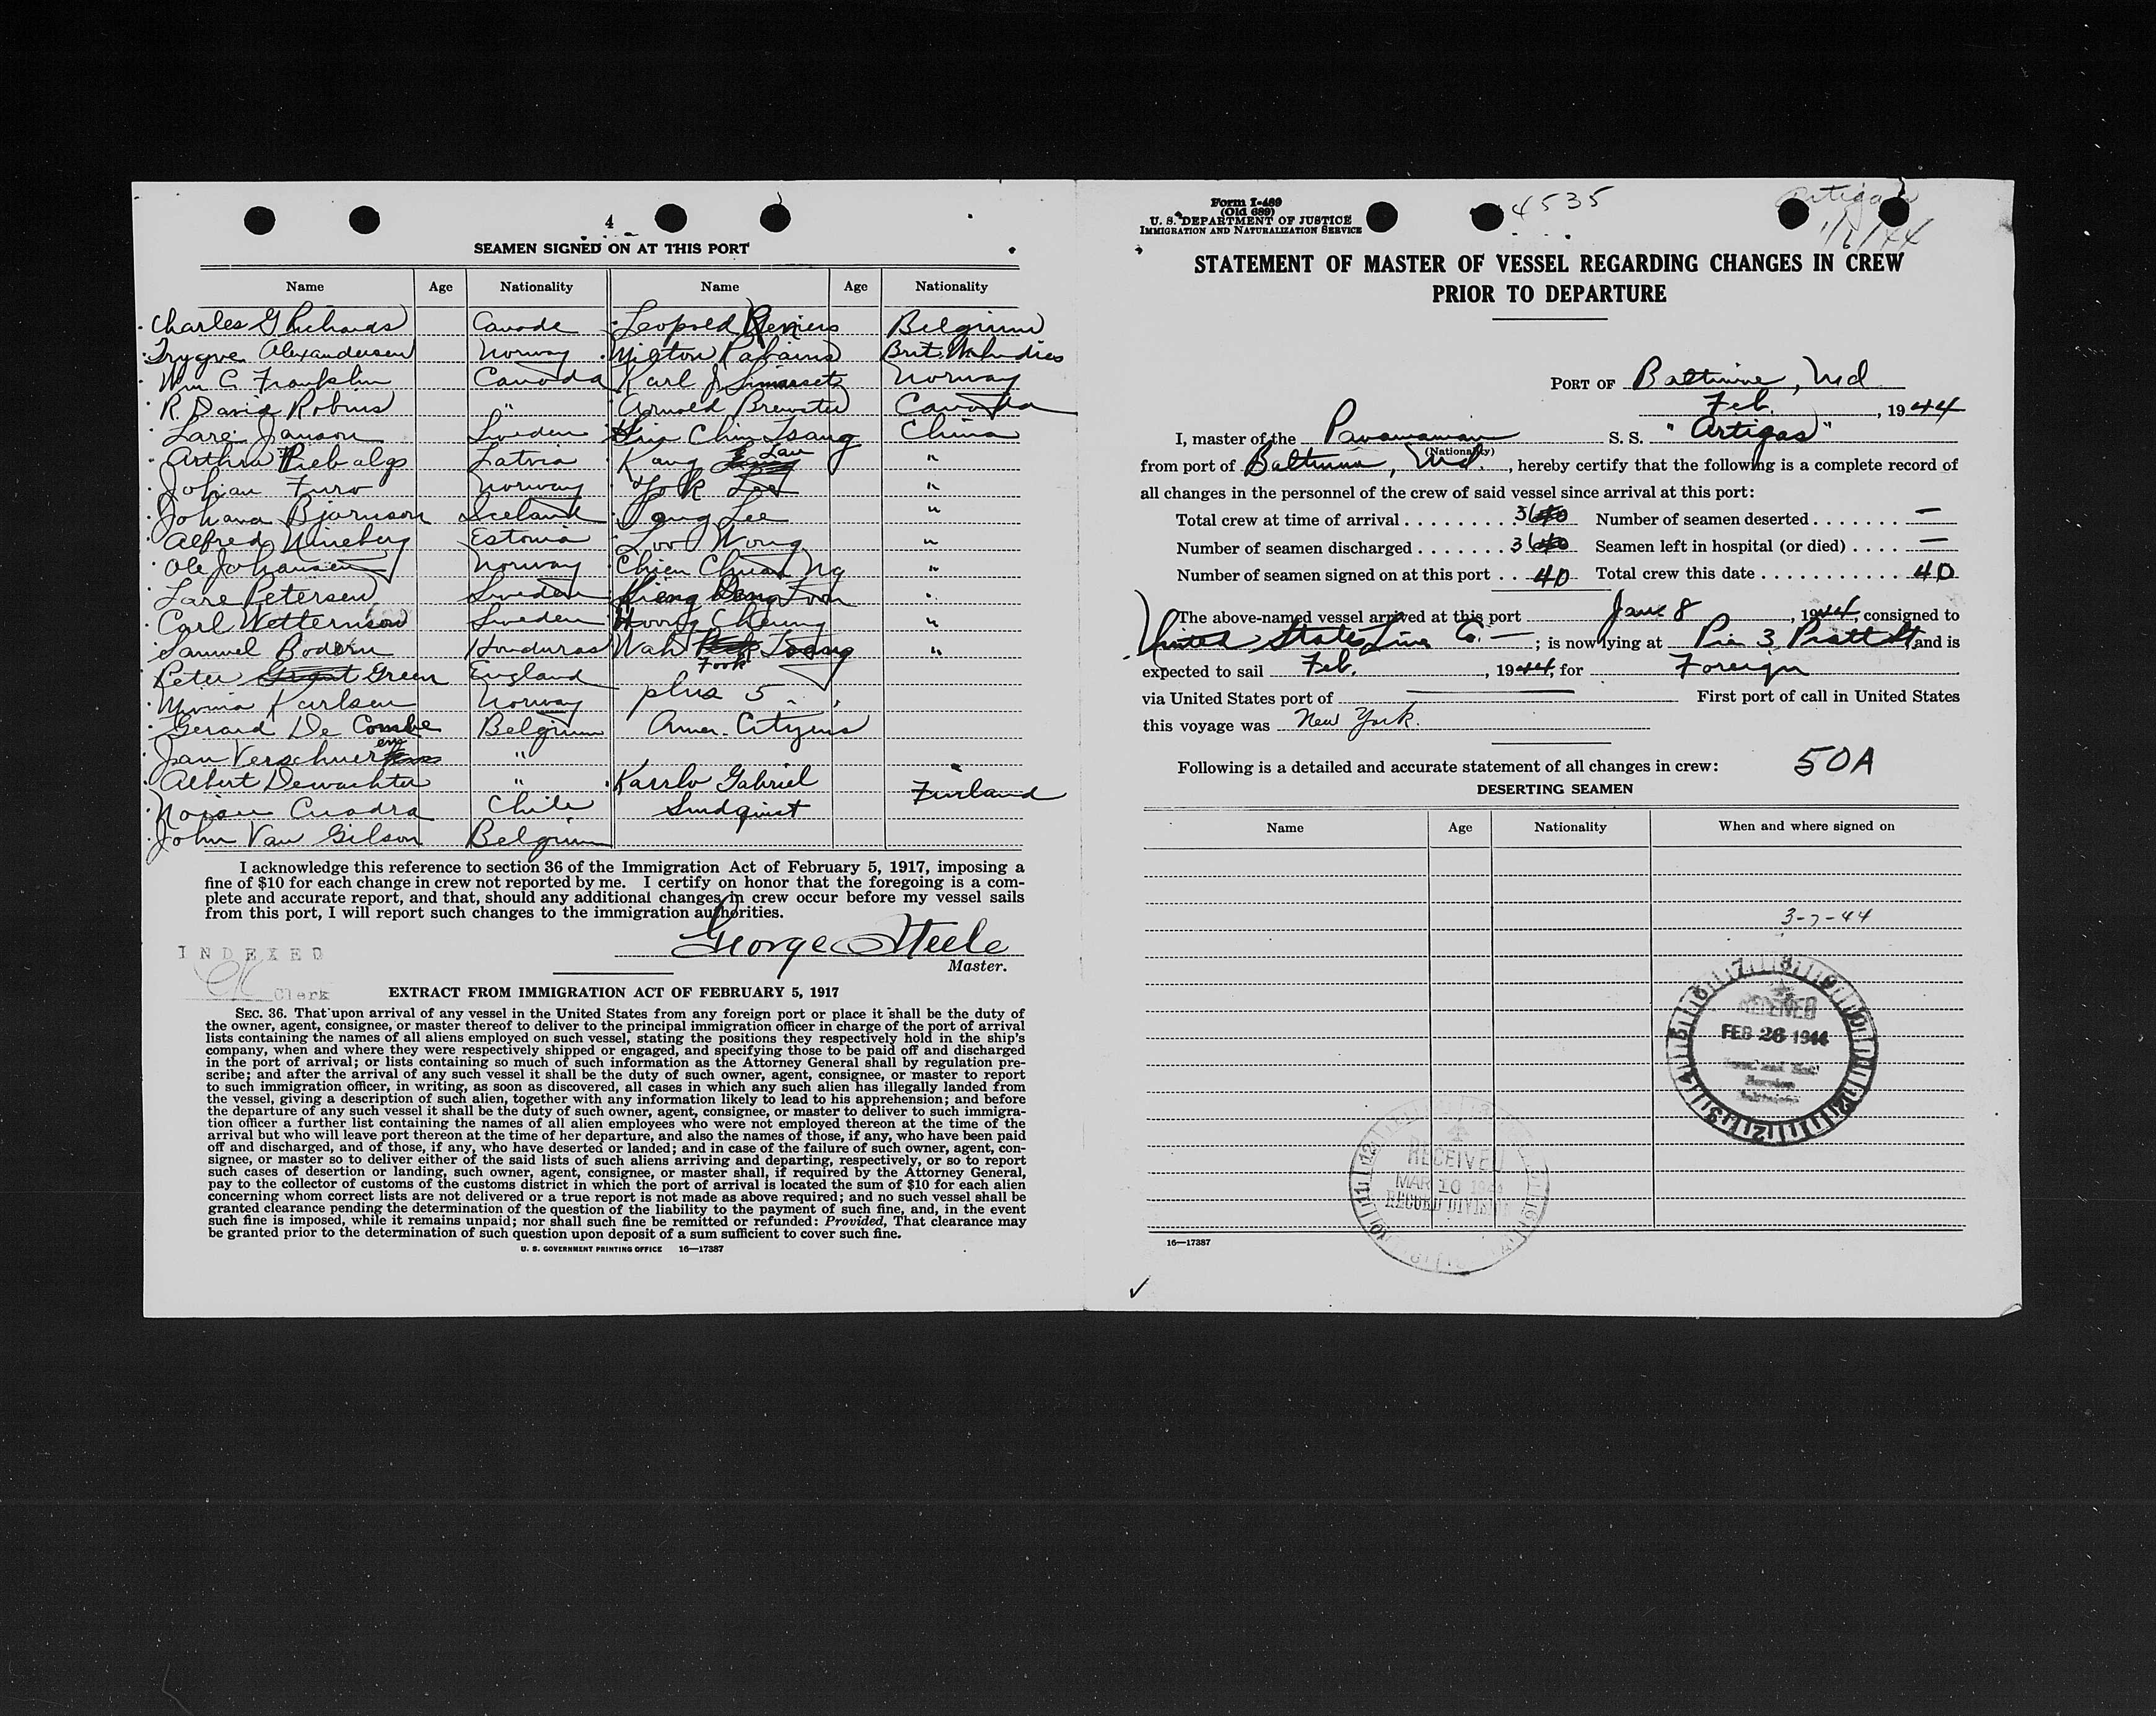 4
SEAMEN SIGNED ON AT THIS PORT
Name Age Nationality Name Age Nationality
Charles G Richards Canada Leopold Belgium
Trygve Alexandersen Norway Milton Brit. W. Indies
Wm C. Franklin Canada Karl J Norway
R. David Robins " Arnold Brewster Canada
Lars Janson Sweden Chin Tsang China
Arthur Piebalgs Latvia Kang Lau "
Johan Furo Norway York Lee "
Johann Bjornson Iceland Pong Lee "
Alfred Estonia Loo Wong "
Ole Johansen Norway Chien Chuan Ng "
Lars Petersen Sweden Foon "
Carl Wetternson Sweden Hoong Cheung "
Samuel Boden Honduras Wah Fook Tsang "
Peter Green England
Karlsen Norway plus 5
Gerard De Combe Belgium Amer. Citizens
Jan Verschueren "
Albert Dewachter " Karrlo Gabriel
Cuadra Chile Sundquist Finland
John Van Gilson Belgium
I acknowledge this reference to section 36 of the Immigration Act of February 5, 1917, imposing a
fine of $10 for each change in crew not reported by me. I certify on honor that the foregoing is a com-
plete and accurate report, and that, should any additional changes in crew occur before my vessel sails
from this port, I will report such changes to the immigration authorities.
George Steele
Master.
INDEXED
Clerk
EXTRACT FROM IMMIGRATION ACT OF FEBRUARY 5, 1917
SEC. 36. That upon arrival of any vessel in the United States from any foreign port or place it shall be the duty of
the owner, agent, consignee, or master thereof to deliver to the principal immigration officer in charge of the port of arrival
lists containing the names of all aliens employed on such vessel, stating the positions they respectively hold in the ship's
company, when and where they were respectively shipped or engaged, and specifying those to be paid off and discharged
in the port of arrival; or lists containing so much of such information as the Attorney General shall by regulation pre-
scribe; and after the arrival of any such vessel it shall be the duty of such owner, agent, consignee, or master to report
to such immigration officer, in writing, as soon as discovered, all cases in which any such alien has illegally landed from
the vessel, giving a description of such alien, together with any information likely to lead to his apprehension; and before
the departure of any such vessel it shall be the duty of such owner, agent, consignee, or master to deliver to such immigra-
tion officer a further list containing the names of all alien employees who were not employed thereon at the time of the
arrival but who will leave port thereon at the time of her departure, and also the names of those, if any, who have been paid
off and discharged, and of those, if any, who have deserted or landed; and in case of the failure of such owner, agent, con-
signee, or master so to deliver either of the said lists of such aliens arriving and departing, respectively, or so to report
such cases of desertion or landing, such owner, agent, consignee, or master shall, if required by the Attorney General,
pay to the collector of customs of the customs district in which the port of arrival is located the sum of $10 for each alien
concerning whom correct lists are not delivered or a true report is not made as above required; and no such vessel shall be
granted clearance pending the determination of the question of the liability to the payment of such fine, and, in the event
such fine is imposed, while it remains unpaid; nor shall such fine be remitted or refunded: Provided, That clearance may
be granted prior to the determination of such question upon deposit of a sum sufficient to cover such fine.
U. S. GOVERNMENT PRINTING OFFICE 16—17387
Form I-489
(Old 689)
U. S. DEPARTMENT OF JUSTICE
IMMIGRATION AND NATURALIZATION SERVICE
4535
Artigas
1/6/44
STATEMENT OF MASTER OF VESSEL REGARDING CHANGES IN CREW
PRIOR TO DEPARTURE
PORT OF Baltimore, Md
Feb. , 1944
I, master of the Panamanian S. S. "Artigas"
(Nationality)
from port of Baltimore, Md. , hereby certify that the following is a complete record of
all changes in the personnel of the crew of said vessel since arrival at this port:
Total crew at time of arrival 36 Number of seamen deserted —
Number of seamen discharged 36 Seamen left in hospital (or died) —
Number of seamen signed on at this port 40 Total crew this date 40
The above-named vessel arrived at this port Jan 8 , 1944, consigned to
United States Line Co. — ; is now lying at Pier 3 Pratt St, and is
expected to sail Feb. , 1944, for Foreign
via United States port of First port of call in United States
this voyage was New York.
Following is a detailed and accurate statement of all changes in crew: 50A
DESERTING SEAMEN
Name Age Nationality When and where signed on
3-7-44
RECEIVED
FEB 26 1944
RECEIVED
MAR 10 1944
RECORD DIVISION
16—17387